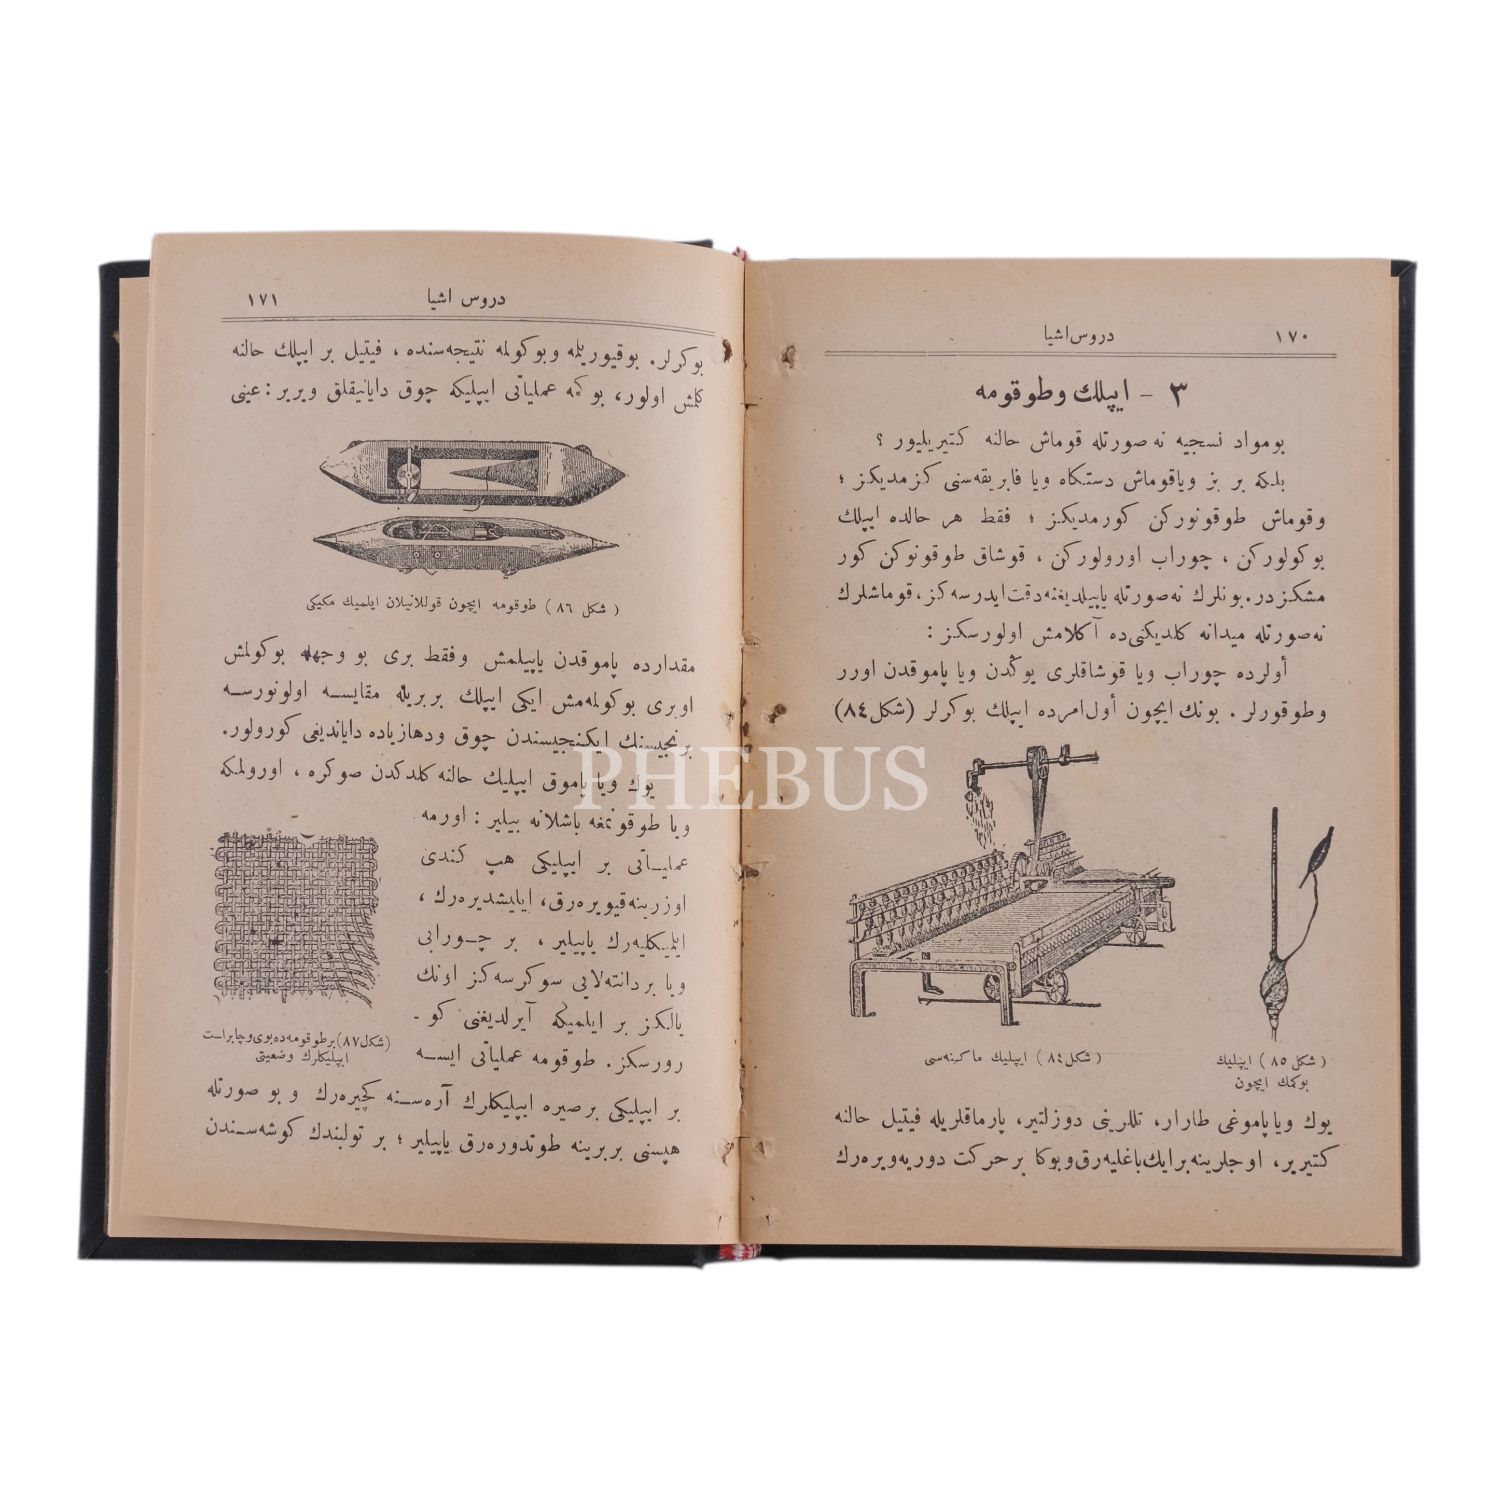 ١٧٠
دروس اشيا
٣ - ايپلك وطوقومه
بومواد نسجيه نه‌صورتله قوماش حالنه كتيريليور ؟
بلكه بر بز وياقوماش دستكاه ويا فابريقه‌سنى كزمديكز ؛
وقوماش طوقونوركن كورمديكز ؛ فقط هر حالده ايپلك
بوكولوركن ، چوراب اورولوركن ، قوشاق طوقونوكن كور
مشكزدر. بونلرك نه‌صورتله ياپيلديغنه دقت ايدرسه‌كز، قوماشلرك
نه‌صورتله ميدانه كلديكنى‌ده آكلامش اولورسكز :
أولرده چوراب ويا قوشاقلرى يوڭدن ويا پاموقدن اورر
وطوقورلر . بونك ايچون أول‌امرده ايپلك بوكرلر (شكل ٨٤)
(شكل ٨٤ ) ايپليك ماكينه‌سى
( شكل ٨٥ ) ايپليك
بوكمك ايچون
يوك وياپاموغى طارار، تللرينى دوزلتير، پارماقلريله فيتيل حالنه
كتيرير، اوجلرينه برايك‌باغليه‌رق‌وبوكا برحركت دوريه‌ويره‌رك
دروس اشيا
١٧١
بوكرلر. بوقيوريلمه وبوكولمه نتيجه‌سنده ، فيتيل بر ايپلك حالنه
كلمش اولور، بوكمه عملياتى ايپليكه چوق دايانيقلق ويرير : عينى
( شكل ٨٦ ) طوقومه ايچون قوللانيلان ايلميك مكيكى
مقدارده پاموقدن ياپيلمش وفقط برى بو وجهله بوكولمش
اوبرى بوكولمه‌مش ايكى ايپلك بربريله مقايسه اولونورسه
برنجيسنك ايكنجيسندن چوق ودهازياده داياندیغى كورولور.
يوك ويا پاموق ايپليك حالنه كلدكدن صوكره ، اورولمكه
ويا طوقونمغه باشلانه بيلير : اورمه
عملياتى بر ايپليكى هپ كندى
اوزرينه‌قيويره‌رق، ايليشديره‌رك ،
ايلميكليه‌رك ياپيلير ، بر چورابى
ويا بردانته‌لايى سوكرسه‌كز اونك
يالكز بر ايلميكه آيرلديغنى كو -
رورسكز. طوقومه عملياتى ايسه
(شكل ٨٧) برطوقومه‌ده‌بوى‌وچاپراست
ايپليكلرك وضعيتى
بر ايپليكى برصيره ايپليكلرك آره‌سنه كچيره‌رك و بو صورتله
هپسنى بربرينه طوتدوره‌رق ياپيلير ؛ بر تولبندك كوشه‌سندن
PHEBUS